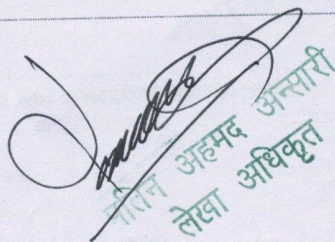 अहमद अन्सारी
लेखा अधिकृत